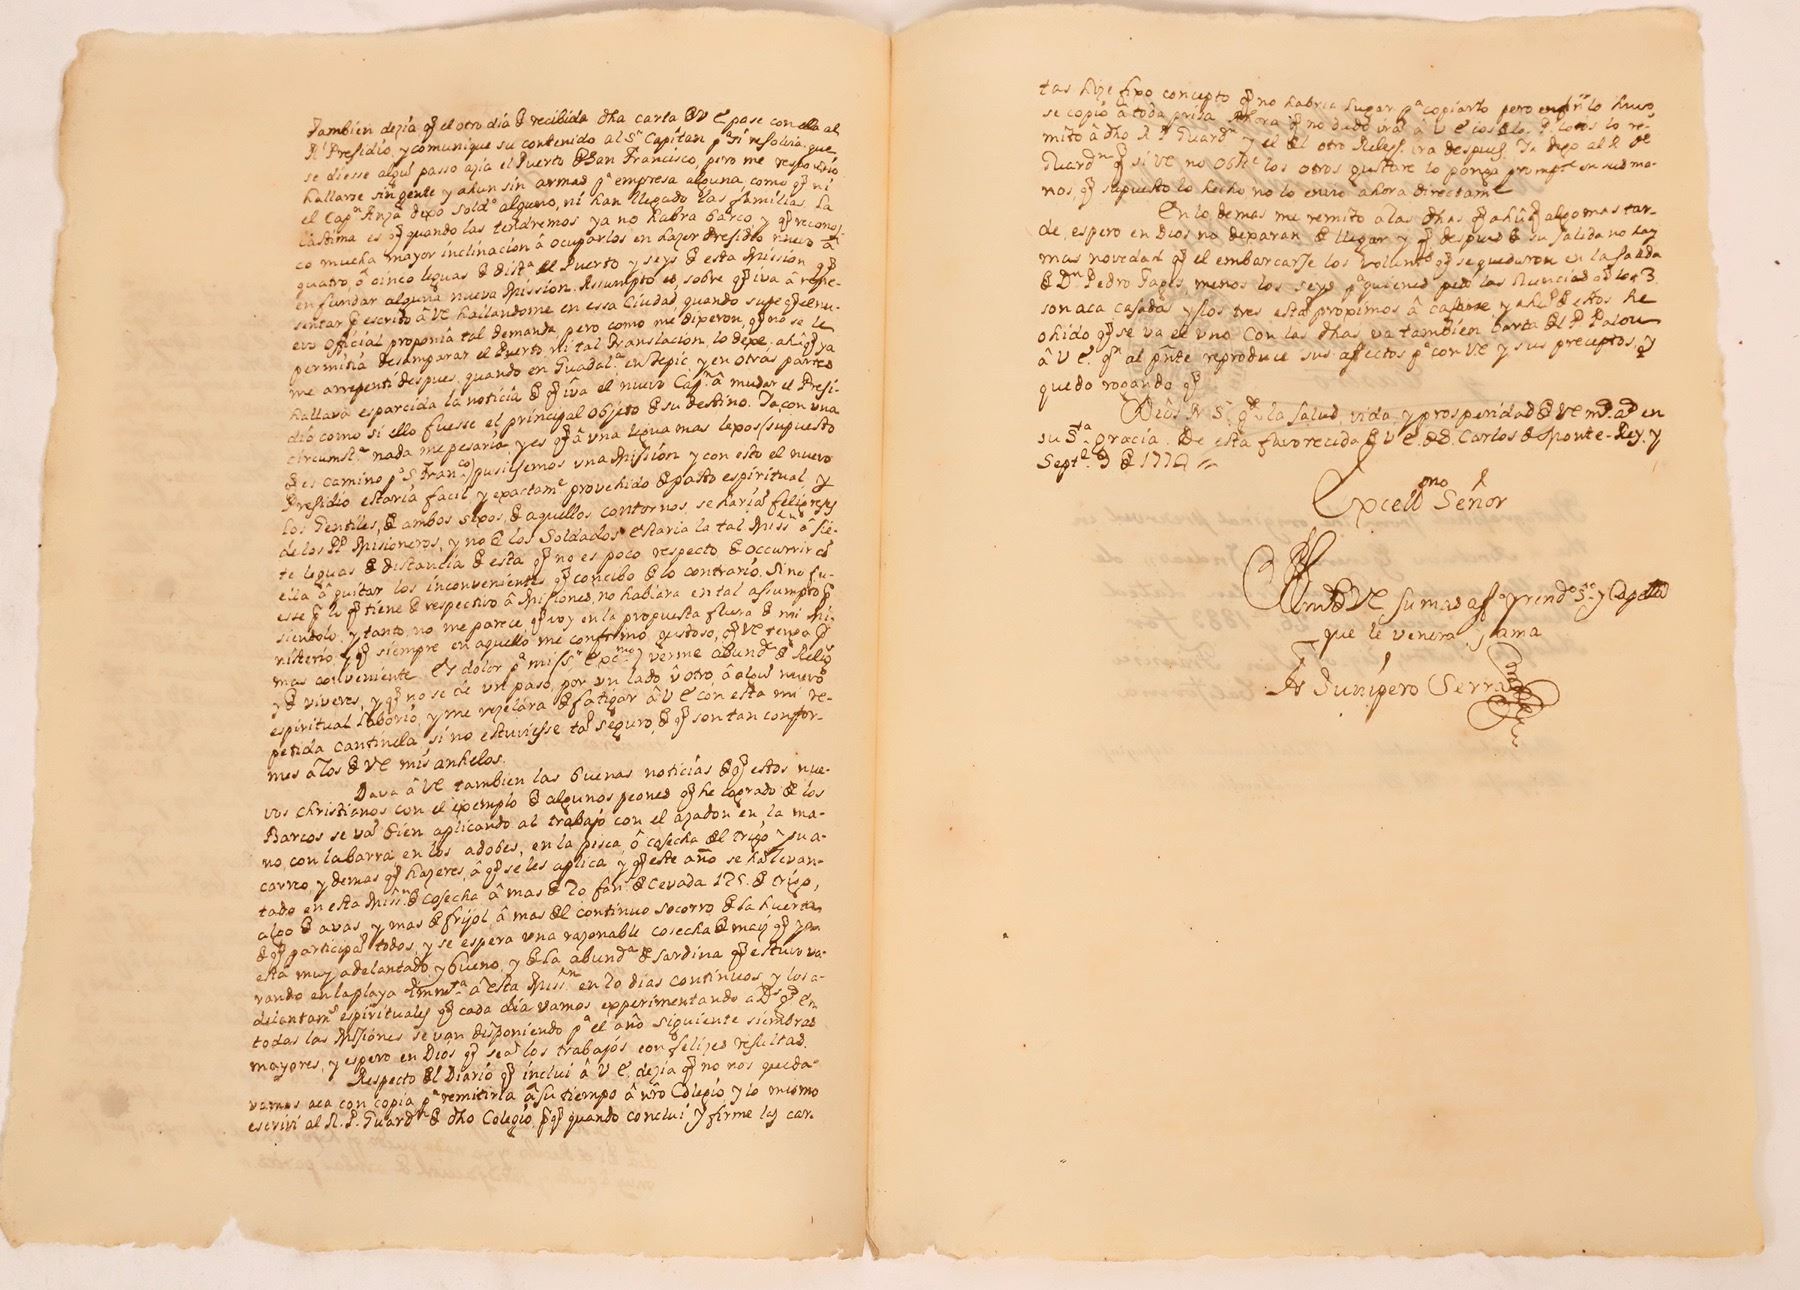 Tambien dezia qe el otro dia de recibida dha carta de V E pase con ella al
Rl Presidio, y comuniquè su contenido al Sr Capitan pa si resolvia que
se diesse algun passo azia el Puerto de San Francisco, pero me respondiò
hallarse sin gente y ahun sin armas pa empresa alguna, como qe ni
el Capn Anza dexo soldo alguno, ni han llegado las familias. La
lastima es qe quando las tendremos ya no habra barco, y qe recono-
co mucha mayor inclinacion â ocuparlos en hazer Presidio nuevo â
quatro, ô cinco leguas de dista del Puerto y seys de esta Mission qe
en fundar alguna nueva Mission. Assumpto es, sobre qe iva â repre-
sentar por escrito â VE hallandome en essa Ciudad quando supe qe el nu-
evo Oficial proponia tal demanda, pero como me dixeron, qe no se le
permitia desamparar el Puerto, ni tal translacion, lo dexe. ahunqe ya
me arrepentí despues, quando en Guadala en Tepic, y en otras partes
hallava esparcida la noticia de qe iva el nuevo Capn â mudar el Presi-
dio como si ello fuesse el principal objeto de su destino. Ya con una
circumsta nada me pesaria, y es qe â una legua mas lexos (supuesto
de es camino pa S. Franco) pusiessemos una Mission, y con esto el nuevo
Presidio estaria facil y exactame provehido de pasto espiritual, y
los Gentiles, de ambos sexos, de aquellos contornos, se harian feligreses
de los PP. Misioneros, y no de los Soldados. Estaria la tal Missn â sie-
te leguas de distancia de esta qe no es poco respecto de occurrir con
ella â quitar los inconvenientes qe concibo de lo contrario. Si no fu-
esse por lo qe tiene de respectivo â Missiones, no hablara en tal assumpto, pe
siendolo, y tanto, no me parece qe voy en la propuesta fuera de mi Mi-
nisterio, y qe siempre en aquello me conformo gustoso, qe VE tenga por
mas conveniente. Es dolor pa mi Sr Excmo verme abunde de Religs
y de viveres, y qe no se de un paso, por un lado, û otro, â algun nuevo
espiritual laborio, y me rezelára de fatigar â V E con esta mi re-
petida cantinela, si no estuviesse tan seguro, de qe son tan confor-
mes â los de VE mis anhelos.
Dava â VE tambien las buenas noticias de qe estos nue-
vos christianos con el exemplo de algunos peones qe he logrado de los
Barcos se van bien aplicando al trabajo con el azadon en la ma-
no, con la barra, en los adobes, en la pisca, ô cosecha del trigo y su a-
carreo, y demas qe hazeres, â qe se les aplica, y qe este año se ha levan-
tado en esta Missn de cosecha â mas de 20 fans de cevada 125. de trigo,
algo de avas, y mas de frijol, â mas del continuo socorro de la huerta,
de qe participan todos, y se espera una razonable cosecha de maiz qe ya
està muy adelantado, y bueno, y de la abunda de sardina qe estuvo va-
rando en la playa immta â esta Missn en 20 dias continuos, y los a-
delantams espirituales qe cada dia vamos experimentando a Ds gs En
todas las Missiones se van disponiendo pa el año siguiente siembras
mayores, y espero en Dios qe sean los trabajos con felizes resultas.
Respecto del Diario qe inclui â V E, dezia qe no nos queda-
vamos aca con copia pa remitirla â su tiempo â nro Colegio, y lo mismo
escrivì al R. P. Guardn de dho Colegio, porqe quando conclui, y firme las car-
tas hize fixo concepto qe no habria lugar pa copiarlo, pero en fin lo huvo,
se copiò â toda prisa. Ahora qe no dudo irà â V E
mito â dho R. P. Guardn y el del otro Religs. ira despues. Ya digo al R. Pe
Guardn qe si VE no obste los otros gustare lo ponga prompte en sus ma-
nos, qe supuesto lo hecho no lo envio ahora directame
En lo demas me remito â las dhas qe ahunqe algo mas tar-
de, espero en Dios no dexaran de llegar, y qe despues de su salida no hay
mas novedad qe el embarcarse los volunts qe se quedaron en la salida
de Dn Pedro Fages menos los seys pa quienes pedi las licencias qe los 3.
son aca casados, y los tres estan proximos â casarse, y ahun de estos he
ohido qe se va el uno. Con las dhas va tambien carta del P. Palou
â V E. qn al pnte reproduce sus affectos pa con VE y sus preceptos, y
quedo rogando qe
Dios N Sr gde la salud vida, y prosperidad de VE ms as en
su Sta gracia. De esta favorecida de V E. de S. Carlos de Monte-Rey, y
Septe 9 de 1774
Excellmo Señor
BLM de VE su mas affo y rendo Sro y Cappn
que le venera, y ama
Fr Junipero Serra